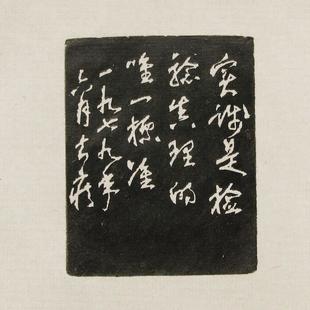 实践是检
验真理的
唯一标准
一九七九年
六月去疾